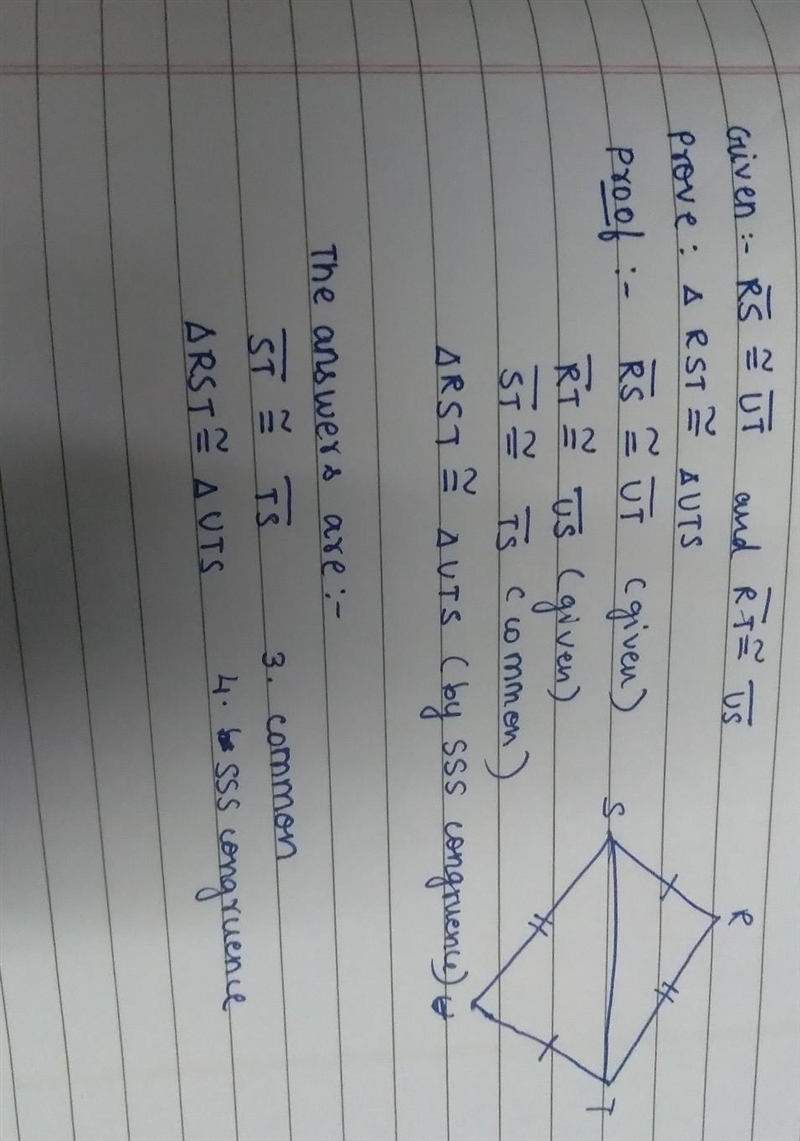 Given :- R̅S̅ ≅ U̅T̅ and R̅T̅ ≅ U̅S̅
Prove : Δ RST ≅ Δ UTS
Proof :- R̅S̅ ≅ U̅T̅ (given)
R̅T̅ ≅ U̅S̅ (given)
S̅T̅ ≅ T̅S̅ (common)
ΔRST ≅ ΔUTS (by SSS congruence)
R
S
T
The answers are :-
S̅T̅ ≅ T̅S̅ 3. common
ΔRST ≅ ΔUTS 4. SSS congruence